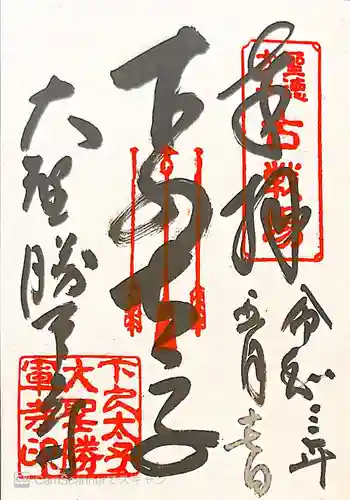 奉拝
聖徳
太子
古戦場
令和三年
五月
下の太子
大聖勝軍寺
下之太子
大聖勝
軍寺印
CamScannerでスキャン